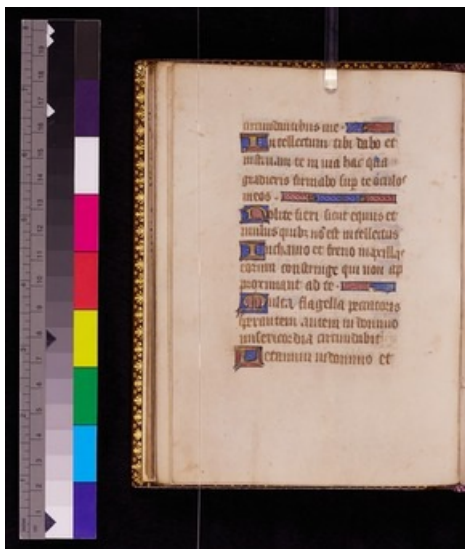 circumdantibus me
Intellectum tibi dabo et
instruam te in via hac qua
gradieris firmabo sup te oculos
meos
Nolite fieri sicut equus et
mulus quib; nō est intellectus
In chamo et freno maxillas
eorum constringe qui non ap
proximant ad te
Multa flagella peccatoris
sperantem autem in domino
misericordia circundabit
Letamini in domino et